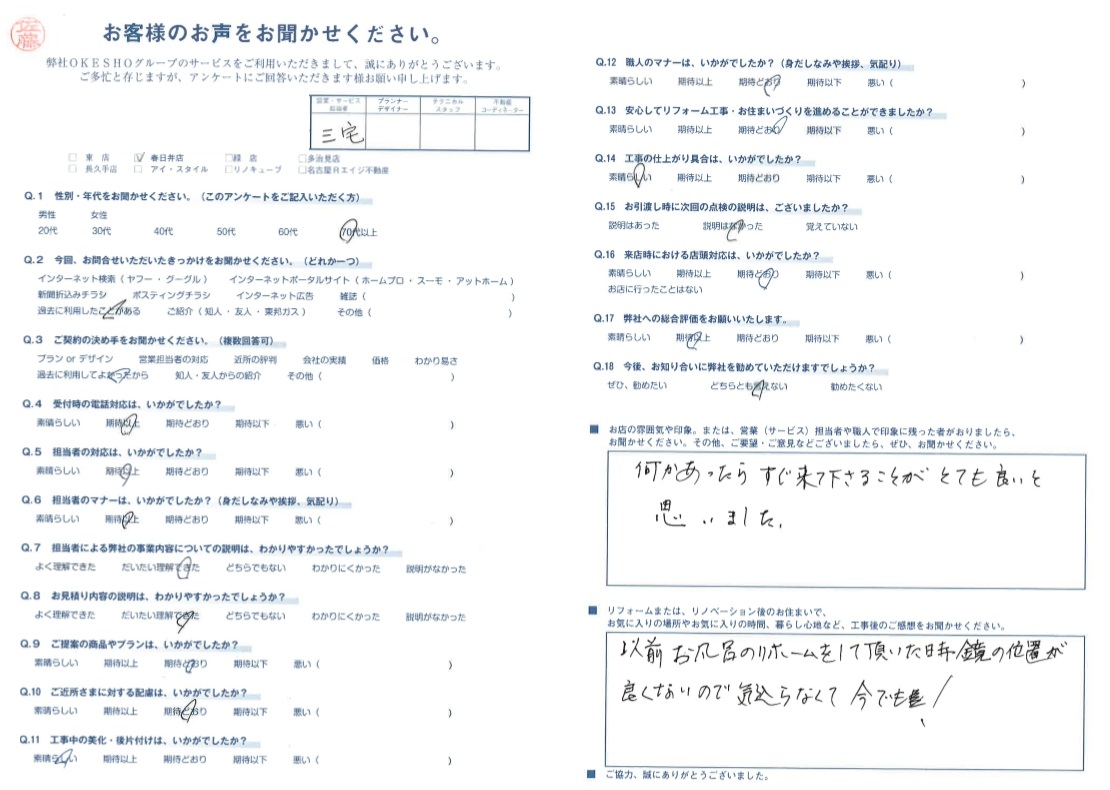 佐藤
お客様のお声をお聞かせください。
弊社OKESHOグループのサービスをご利用いただきまして、誠にありがとうございます。
ご多忙と存じますが、アンケートにご回答いただきます様お願い申し上げます。
営業・サービス担当者 プランナーデザイナー テクニカルスタッフ 不動産コーディネーター
三宅
□ 東 店 ☑ 春日井店 □緑 店 □多治見店
□ 長久手店 □ アイ・スタイル □リノキューブ □名古屋Rエイジ不動産
Q.1 性別・年代をお聞かせください。（このアンケートをご記入いただく方）
男性 女性
20代 30代 40代 50代 60代 70代以上
Q.2 今回、お問合せいただいたきっかけをお聞かせください。（どれか一つ）
インターネット検索（ ヤフー ・ グーグル ） インターネットポータルサイト（ ホームプロ ・ スーモ ・ アットホーム ）
新聞折込みチラシ ポスティングチラシ インターネット広告 雑誌（ ）
過去に利用したことがある ご紹介（ 知人 ・ 友人 ・ 東邦ガス ） その他（ ）
Q.3 ご契約の決め手をお聞かせください。（複数回答可）
プラン or デザイン 営業担当者の対応 近所の評判 会社の実績 価格 わかり易さ
過去に利用してよかったから 知人・友人からの紹介 その他（ ）
Q.4 受付時の電話対応は、いかがでしたか？
素晴らしい 期待以上 期待どおり 期待以下 悪い（ ）
Q.5 担当者の対応は、いかがでしたか？
素晴らしい 期待以上 期待どおり 期待以下 悪い（ ）
Q.6 担当者のマナーは、いかがでしたか？（身だしなみや挨拶、気配り）
素晴らしい 期待以上 期待どおり 期待以下 悪い（ ）
Q.7 担当者による弊社の事業内容についての説明は、わかりやすかったでしょうか？
よく理解できた だいたい理解できた どちらでもない わかりにくかった 説明がなかった
Q.8 お見積り内容の説明は、わかりやすかったでしょうか？
よく理解できた だいたい理解できた どちらでもない わかりにくかった 説明がなかった
Q.9 ご提案の商品やプランは、いかがでしたか？
素晴らしい 期待以上 期待どおり 期待以下 悪い（ ）
Q.10 ご近所さまに対する配慮は、いかがでしたか？
素晴らしい 期待以上 期待どおり 期待以下 悪い（ ）
Q.11 工事中の美化・後片付けは、いかがでしたか？
素晴らしい 期待以上 期待どおり 期待以下 悪い（ ）
Q.12 職人のマナーは、いかがでしたか？（身だしなみや挨拶、気配り）
素晴らしい 期待以上 期待どおり 期待以下 悪い（ ）
Q.13 安心してリフォーム工事・お住まいづくりを進めることができましたか？
素晴らしい 期待以上 期待どおり 期待以下 悪い（ ）
Q.14 工事の仕上がり具合は、いかがでしたか？
素晴らしい 期待以上 期待どおり 期待以下 悪い（ ）
Q.15 お引渡し時に次回の点検の説明は、ございましたか？
説明はあった 説明はなかった 覚えていない
Q.16 来店時における店頭対応は、いかがでしたか？
素晴らしい 期待以上 期待どおり 期待以下 悪い（ ）
お店に行ったことはない
Q.17 弊社への総合評価をお願いいたします。
素晴らしい 期待以上 期待どおり 期待以下 悪い（ ）
Q.18 今後、お知り合いに弊社を勧めていただけますでしょうか？
ぜひ、勧めたい どちらとも言えない 勧めたくない
■ お店の雰囲気や印象。または、営業（サービス）担当者や職人で印象に残った者がおりましたら、
お聞かせください。その他、ご要望・ご意見などございましたら、ぜひ、お聞かせください。
何かあったらすぐ来て下さることがとても良いと
思いました。
■ リフォームまたは、リノベーション後のお住まいで、
お気に入りの場所やお気に入りの時間、暮らし心地など、工事後のご感想をお聞かせください。
以前お風呂のリホームをして頂いた時鏡の位置が
良くないので気に入らなくて今でも
■ ご協力、誠にありがとうございました。